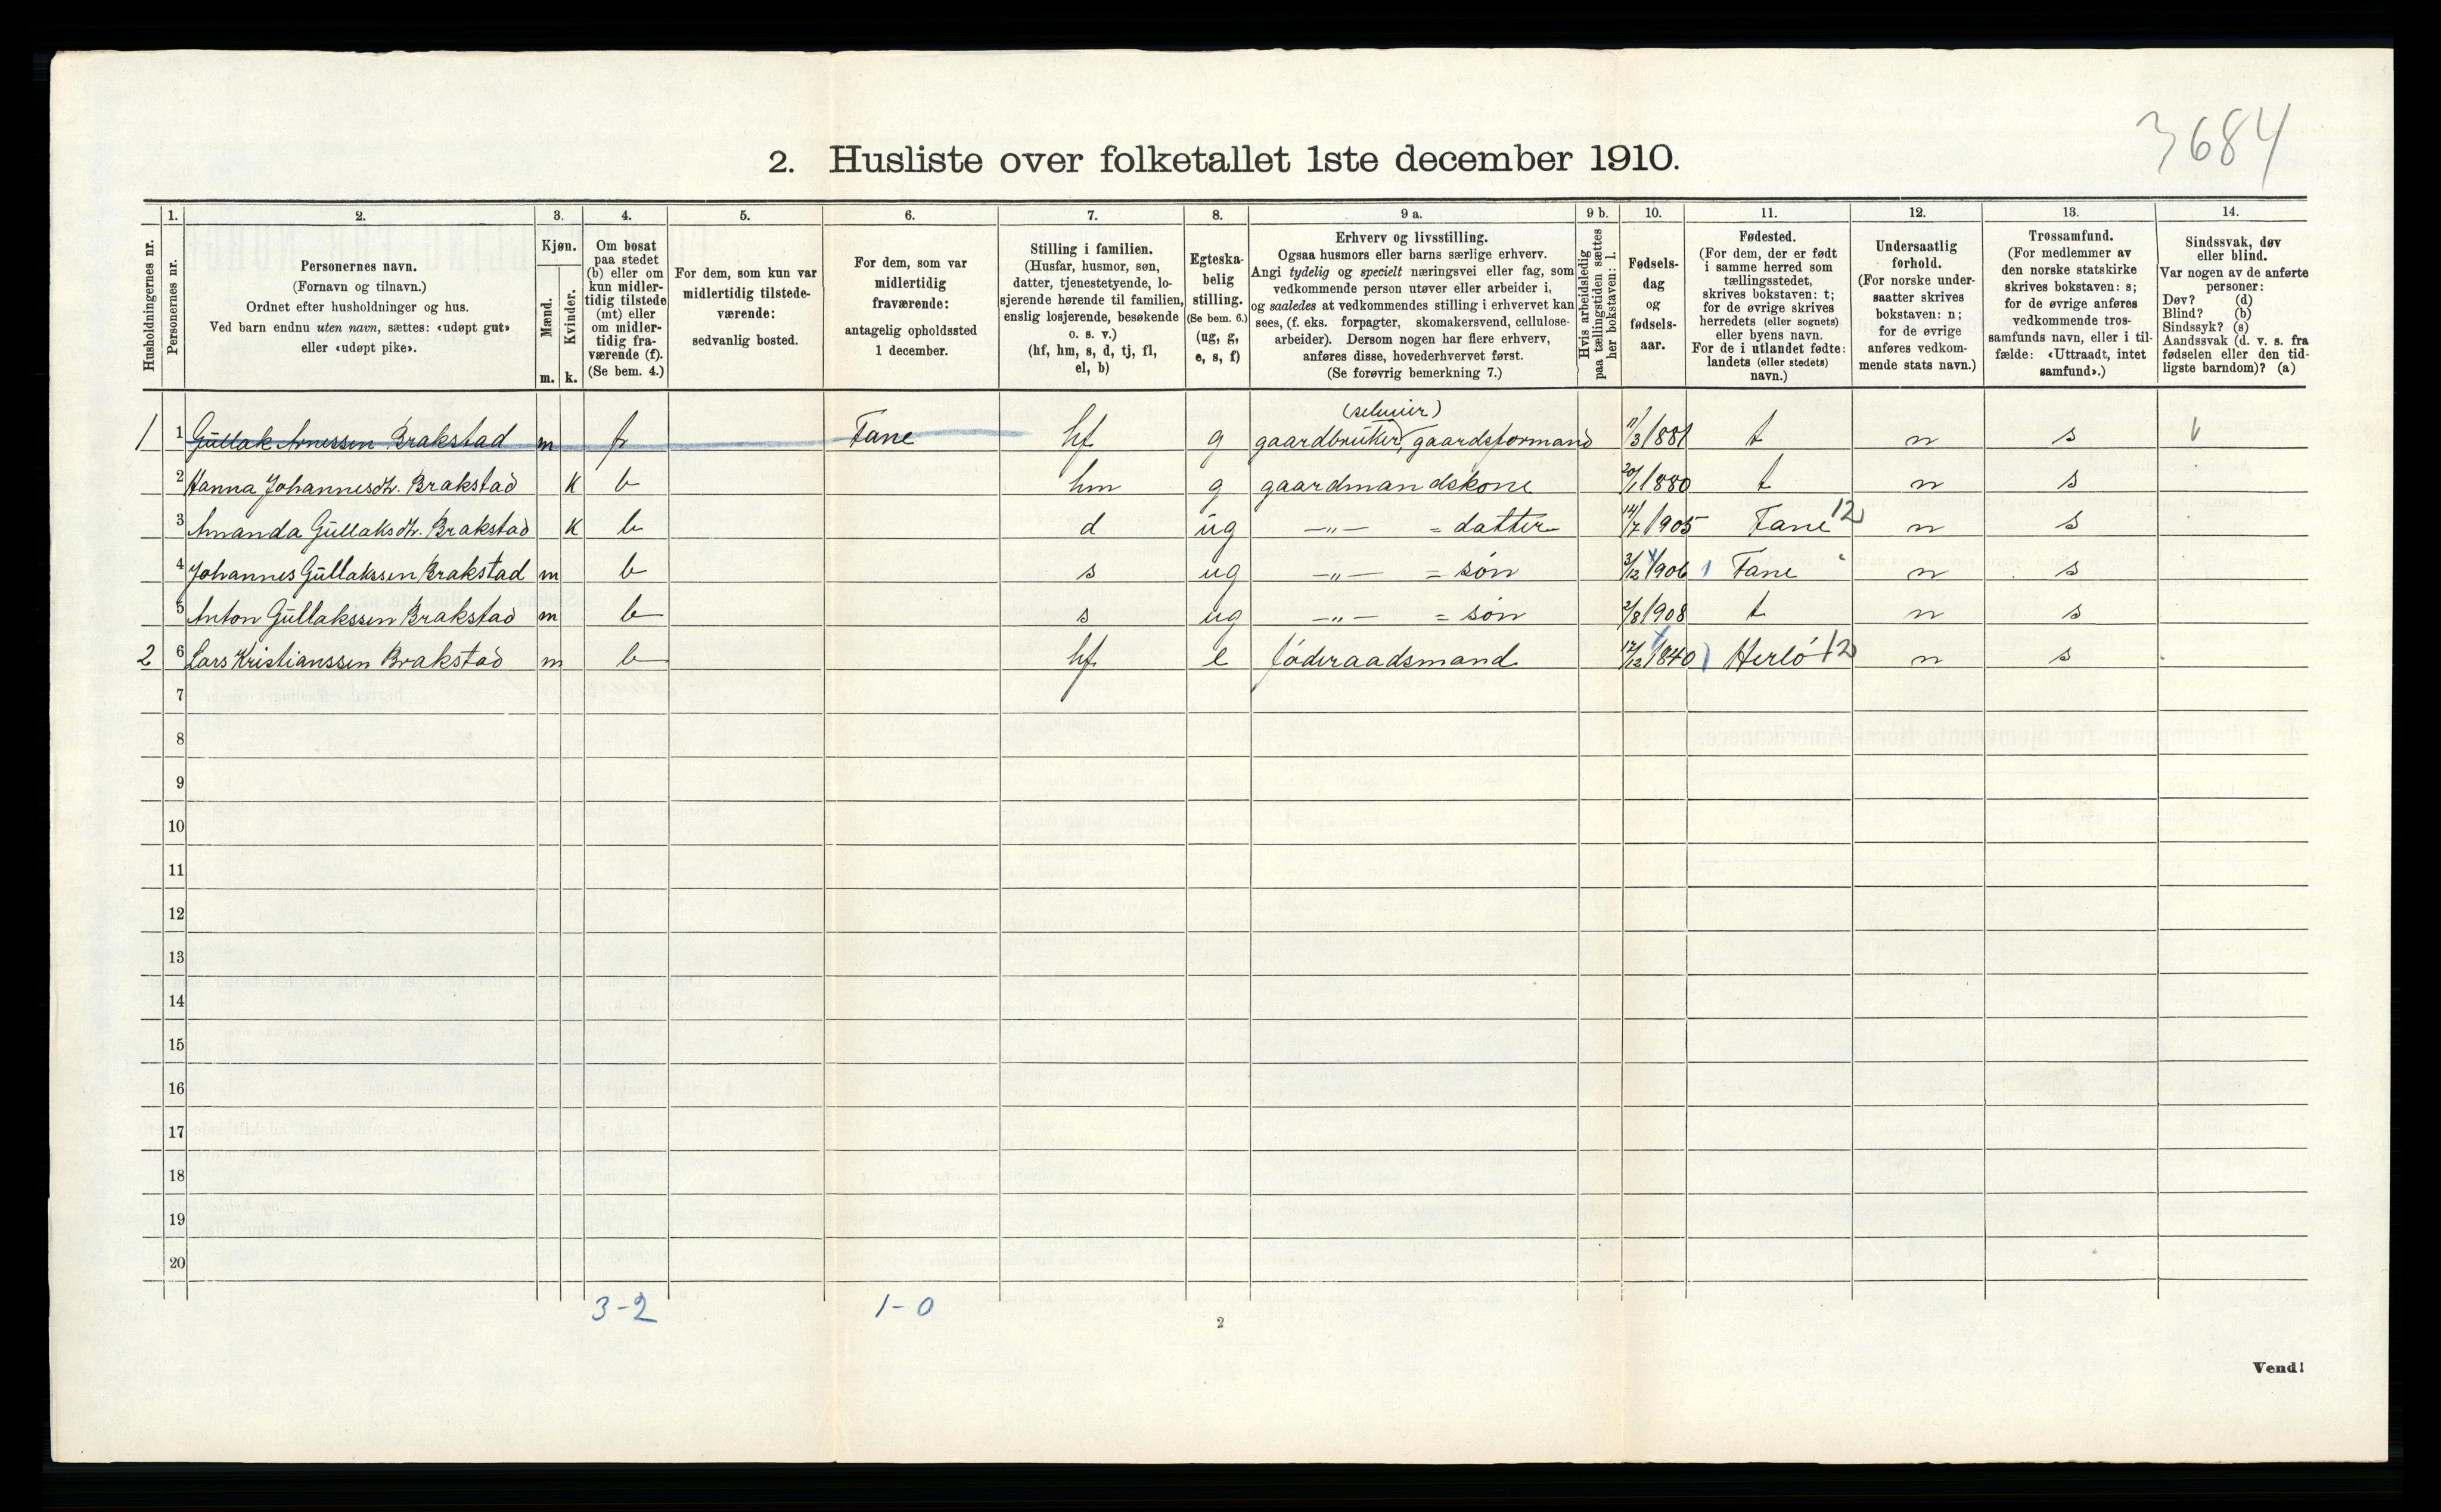 3684
2. Husliste over folketallet 1ste december 1910.
1. 2. 3. 4. 5. 6. 7. 8. 9 a. 9 b. 10. 11. 12. 13. 14.
Husholdningernes nr.
Personernes nr.
Personernes navn.
(Fornavn og tilnavn.)
Ordnet efter husholdninger og hus.
Ved barn endnu uten navn, sættes: «udøpt gut»
eller «udøpt pike».
Kjøn.
Mænd.
Kvinder.
m. k.
Om bosat
paa stedet
(b) eller om
kun midler-
tidig tilstede
(mt) eller
om midler-
tidig fra-
værende (f).
(Se bem. 4.)
For dem, som kun var
midlertidig tilstede-
værende:
sedvanlig bosted.
For dem, som var
midlertidig
fraværende:
antagelig opholdssted
1 december.
Stilling i familien.
(Husfar, husmor, søn,
datter, tjenestetyende, lo-
sjerende hørende til familien,
enslig losjerende, besøkende
o. s. v.)
(hf, hm, s, d, tj, fl,
el, b)
Egteska-
belig
stilling.
(Se bem. 6.)
(ug, g,
e, s, f)
Erhverv og livsstilling.
Ogsaa husmors eller barns særlige erhverv.
Angi tydelig og specielt næringsvei eller fag, som
vedkommende person utøver eller arbeider i,
og saaledes at vedkommendes stilling i erhvervet kan
sees, (f. eks. forpagter, skomakersvend, cellulose-
arbeider). Dersom nogen har flere erhverv,
anføres disse, hovederhvervet først.
(Se forøvrig bemerkning 7.)
Hvis arbeidsledig
paa tællingstiden sættes
her bokstaven: l.
Fødsels-
dag
og
fødsels-
aar.
Fødested.
(For dem, der er født
i samme herred som
tællingsstedet,
skrives bokstaven: t;
for de øvrige skrives
herredets (eller sognets)
eller byens navn.
For de i utlandet fødte:
landets (eller stedets)
navn.)
Undersaatlig
forhold.
(For norske under-
saatter skrives
bokstaven: n;
for de øvrige
anføres vedkom-
mende stats navn.)
Trossamfund.
(For medlemmer av
den norske statskirke
skrives bokstaven: s;
for de øvrige anføres
vedkommende tros-
samfunds navn, eller i til-
fælde: «Uttraadt, intet
samfund».)
Sindssvak, døv
eller blind.
Var nogen av de anførte
personer:
Døv? (d)
Blind? (b)
Sindssyk? (s)
Aandssvak (d. v. s. fra
fødselen eller den tid-
ligste barndom)? (a)
(seluier)
1 1 Gullak Arnessen Brakstad m f Fane hf g gaardbruker, gaardsformand 11/3 1881 t n s
2 Hanna Johannesdt. Brakstad k b hm g gaardmandskone 20/1 1880 t n s
3 Amanda Gullaksdt. Brakstad k b d ug —„— = datter 14/7 1905 Fane 12 n s
4 Johannes Gullakssen Brakstad m b s ug —„— = søn 3/12 1906 Fane n s
5 Anton Gullakssen Brakstad m b s ug —„— = søn 2/8 1908 t n s
2 6 Lars Kristianssen Brakstad m b hf e føderaadsmand 17/12 1840 Herlö 12 n s
7
8
9
10
11
12
13
14
15
16
17
18
19
20
3-2 1-0
2
Vend!